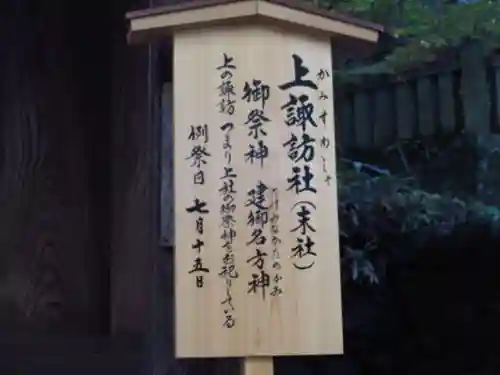 かみすわしゃ
上諏訪社（末社）
御祭神　建御名方神
たけみなかたのかみ
上の諏訪　つまり上社の御祭神をお祀りしている
例祭日　七月十五日